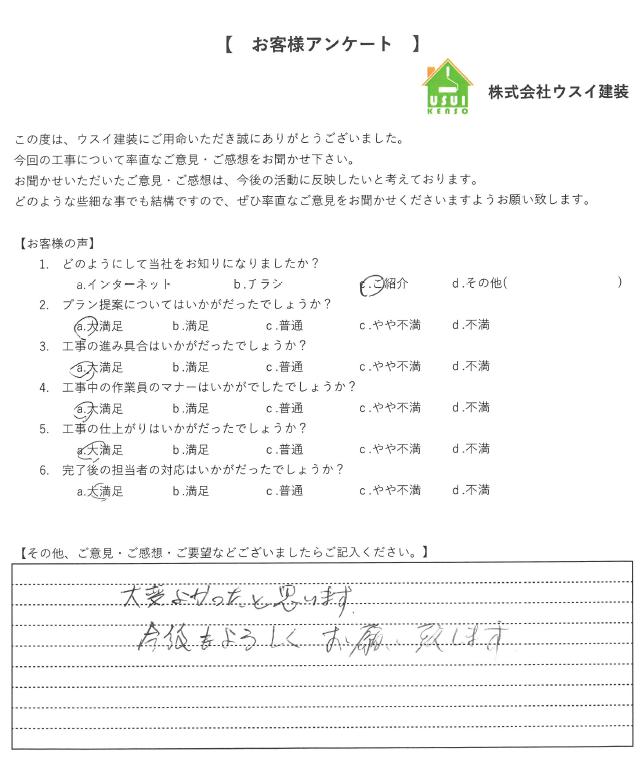 【 お客様アンケート 】
USUI
KENSO
株式会社ウスイ建装
この度は、ウスイ建装にご用命いただき誠にありがとうございました。
今回の工事について率直なご意見・ご感想をお聞かせ下さい。
お聞かせいただいたご意見・ご感想は、今後の活動に反映したいと考えております。
どのような些細な事でも結構ですので、ぜひ率直なご意見をお聞かせくださいますようお願い致します。
【お客様の声】
1. どのようにして当社をお知りになりましたか？
a.インターネット b.チラシ c.ご紹介 d.その他( )
2. プラン提案についてはいかがだったでしょうか？
a.大満足 b.満足 c.普通 c.やや不満 d.不満
3. 工事の進み具合はいかがだったでしょうか？
a.大満足 b.満足 c.普通 c.やや不満 d.不満
4. 工事中の作業員のマナーはいかがでしたでしょうか？
a.大満足 b.満足 c.普通 c.やや不満 d.不満
5. 工事の仕上がりはいかがだったでしょうか？
a.大満足 b.満足 c.普通 c.やや不満 d.不満
6. 完了後の担当者の対応はいかがだったでしょうか？
a.大満足 b.満足 c.普通 c.やや不満 d.不満
【その他、ご意見・ご感想・ご要望などございましたらご記入ください。】
大変よかったと思います。
今後もよろしくお願い致します